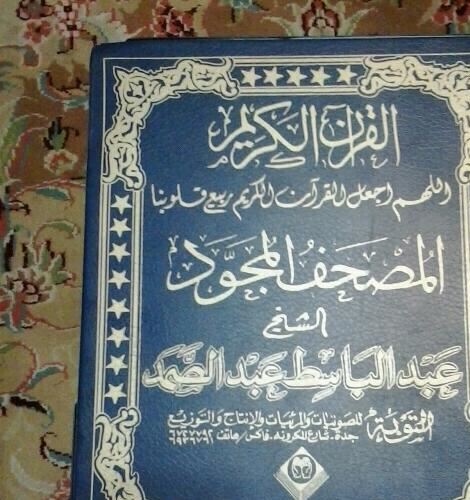 القرآن الكريم
اللهم اجعل القرآن الكريم ربيع قلوبنا
المصحف المجوّد
الشيخ
عبد الباسط عبد الصمد
للصوتيات والمرئيات والإنتاج والتوزيع
جدة - شارع المكرونه - فاكس/هاتف